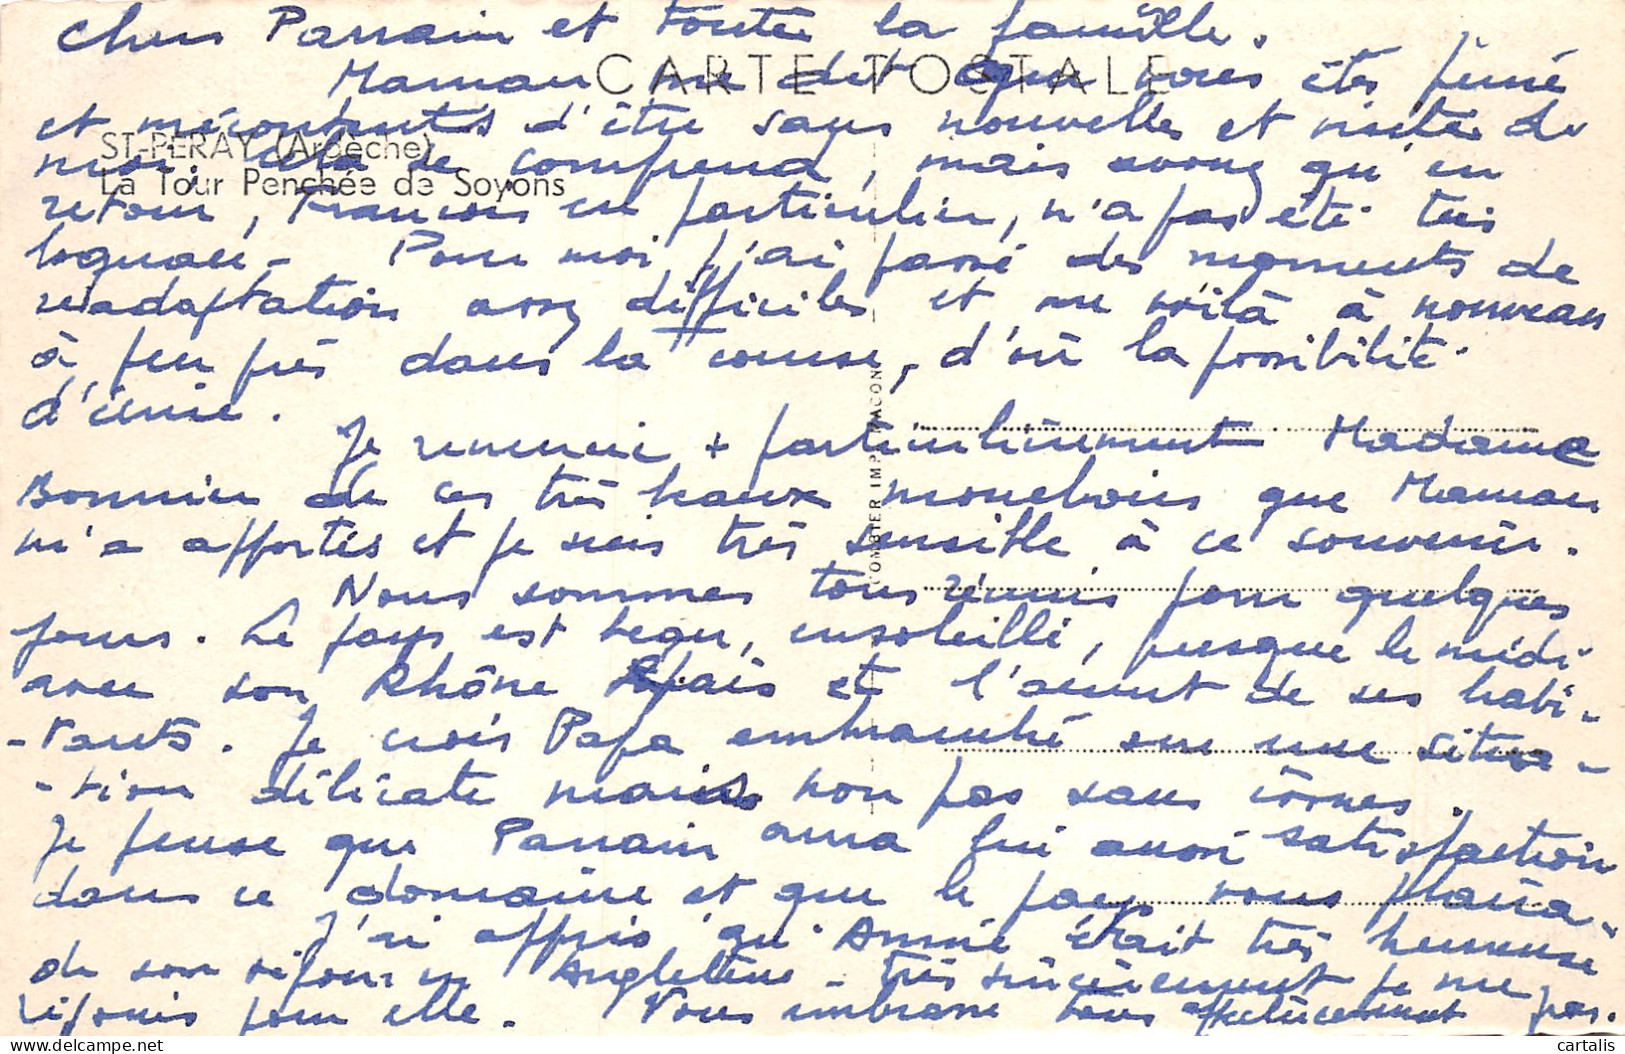 Chers Parrain et toute la famille.
CARTE POSTALE
Maman me dit que vous êtes peiné
et mécontents d'être sans nouvelles et visite de
ST-PERAY (Ardèche)
moi. Cela se comprend, mais avouez qu'en
La Tour Penchée de Soyons
retour, François en particulier, n'a pas été très
loquace - Pour moi, j'ai passé des moments de
réadaptation assez difficiles et me voilà à nouveau
à peu près dans la course, d'où la possibilité
d'écrire.
Je remercie + particulièrement Madame
Bonnier de ces très beaux mouchoirs que Maman
m'a apportés et je suis très sensible à ce souvenir.
COMBIER IMP. MACON
Nous sommes tous réunis pour quelques
jours. Le pays est beau, ensoleillé, presque le midi
avec son Rhône et l'accent de ses habi-
-tants. Je crois Papa embranché sur une situa-
-tion délicate mais non pas sans
Je pense que Parrain aura lui aussi satisfaction
dans ce domaine et que le pays vous plaira.
J'ai appris qu'Annie était très heureuse
de son séjour en Angleterre - très sincèrement je me
réjouis pour elle. Vous embrasse tous affectueusement